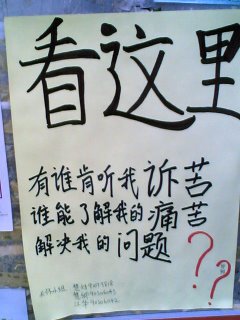 看这里
有谁肯听我诉苦
谁能了解我的痛苦
解决我的问题??